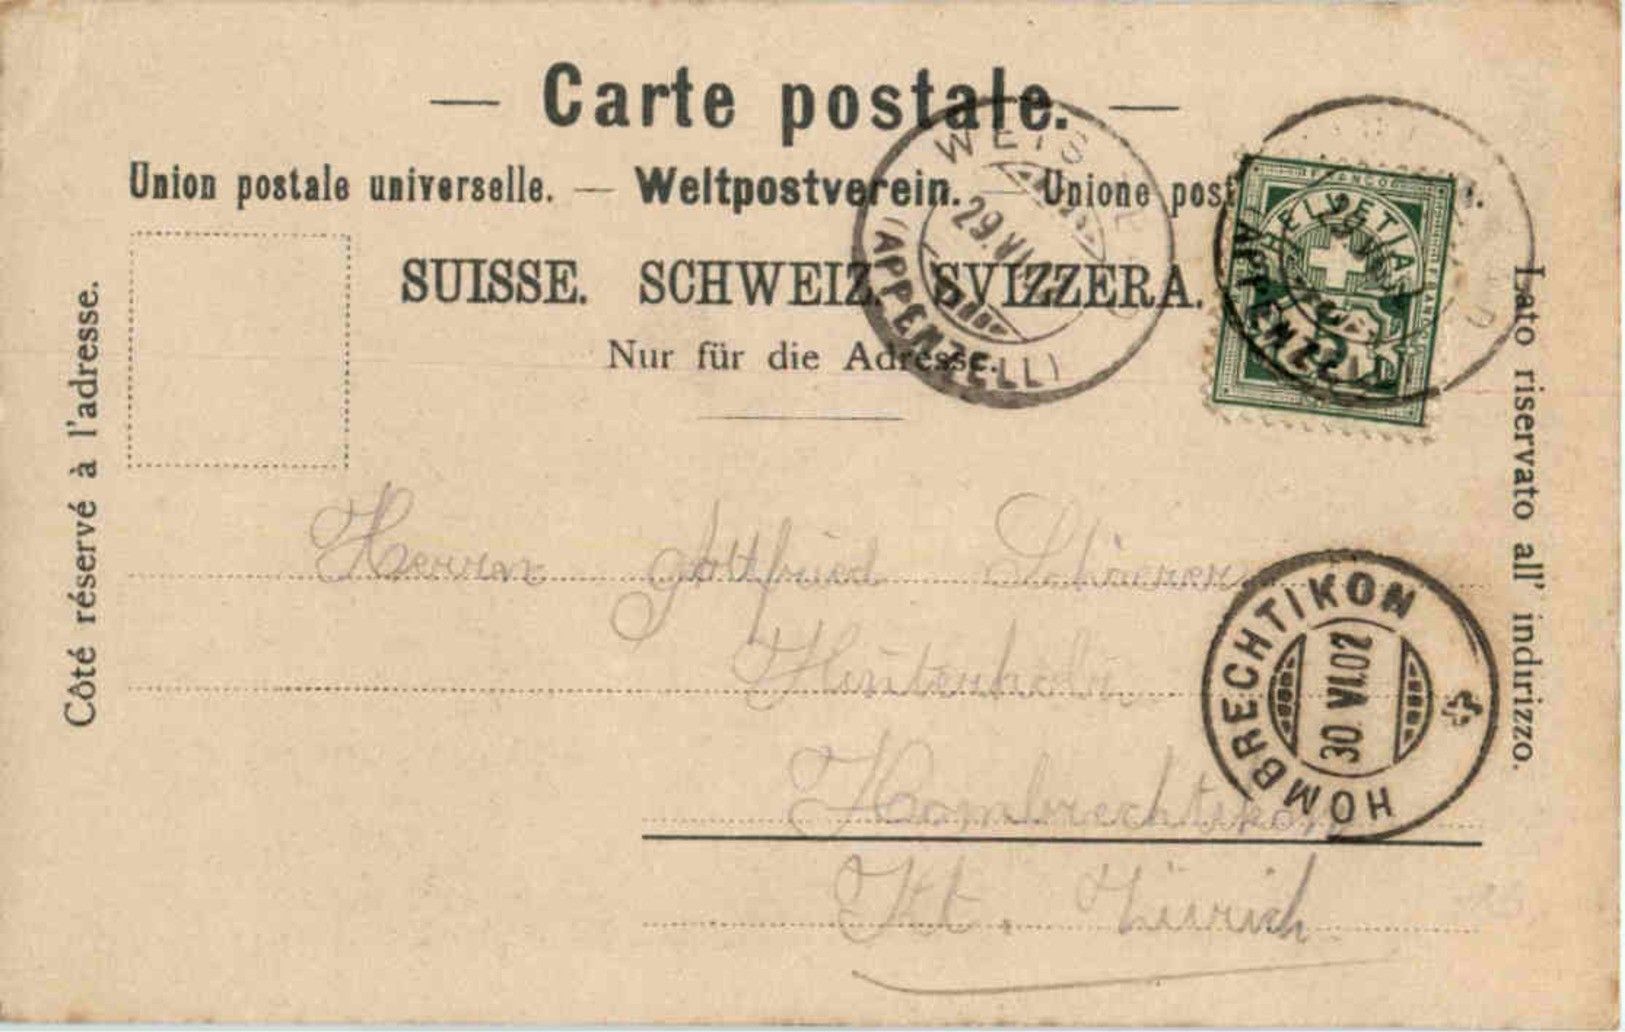 — Carte postale. —
Union postale universelle. — Weltpostverein. — Unione post
SUISSE. SCHWEIZ. SVIZZERA.
Nur für die Adresse.
Côté réservé à l'adresse.
Lato riservato all' indirizzo.
WEIS
29.VI
(APPENZELL)
FRANCO
HELVETIA
5
29.VI
(APPENZELL)
Herrn Gottfried
Hombrechtikon
Kt. Zürich
HOMBRECHTIKON
30.VI.02